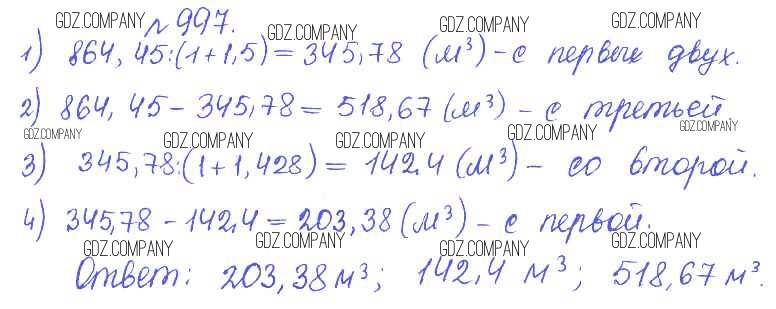 № 997.
1) 864,45:(1+1,5)=345,78 (м³)-с первых двух.
2) 864,45-345,78=518,67(м³)-с третьей
3) 345,78:(1+1,428)=142,4(м³)-со второй.
4) 345,78-142,4=203,38(м³)-с первой.
Ответ: 203,38м³; 142,4 м³; 518,67м³.
GDZ.COMPANY GDZ.COMPANY GDZ.COMPANY GDZ.COMPANY
GDZ.COMPANY GDZ.COMPANY GDZ.COMPANY GDZ.COMPANY GDZ.COMPANY
GDZ.COMPANY GDZ.COMPANY GDZ.COMPANY GDZ.COMPANY